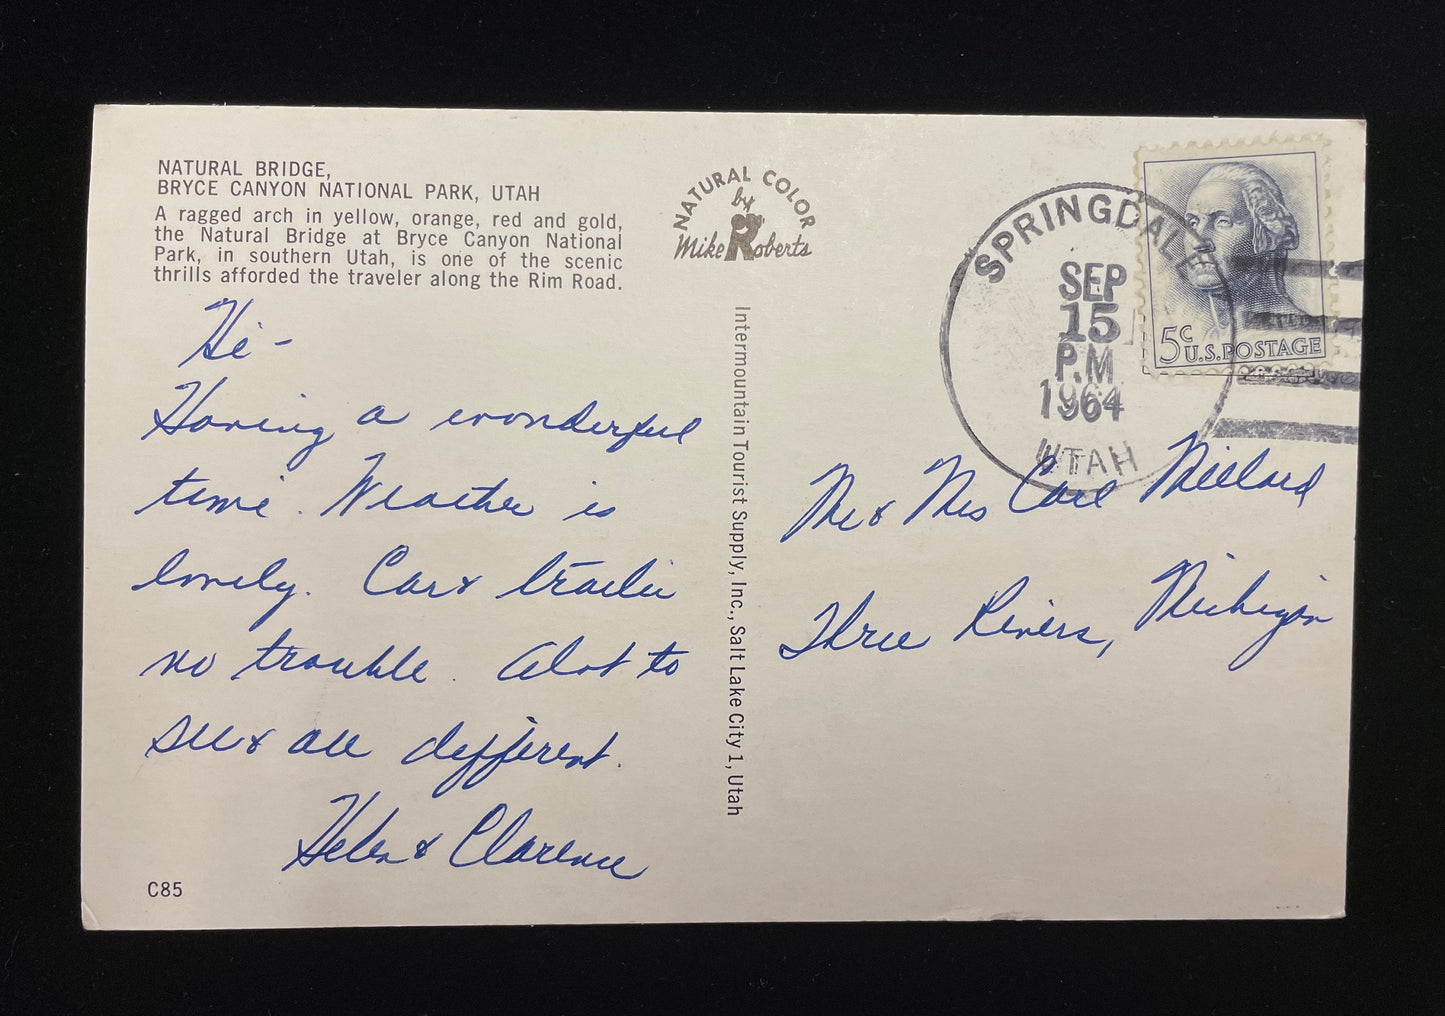 NATURAL BRIDGE,
BRYCE CANYON NATIONAL PARK, UTAH
A ragged arch in yellow, orange, red and gold,
the Natural Bridge at Bryce Canyon National
Park, in southern Utah, is one of the scenic
thrills afforded the traveler along the Rim Road.
Hi-
Having a wonderful
time. Weather is
lovely. Car & trailer
no trouble. Alot to
see & all different.
Helen & Clarence
C85
NATURAL COLOR
by
Mike Roberts
Intermountain Tourist Supply, Inc., Salt Lake City 1, Utah
SPRINGDALE
SEP
15
P.M
1964
UTAH
5c
U.S. POSTAGE
Mr & Mrs Carl Millard
Three Rivers, Michigan